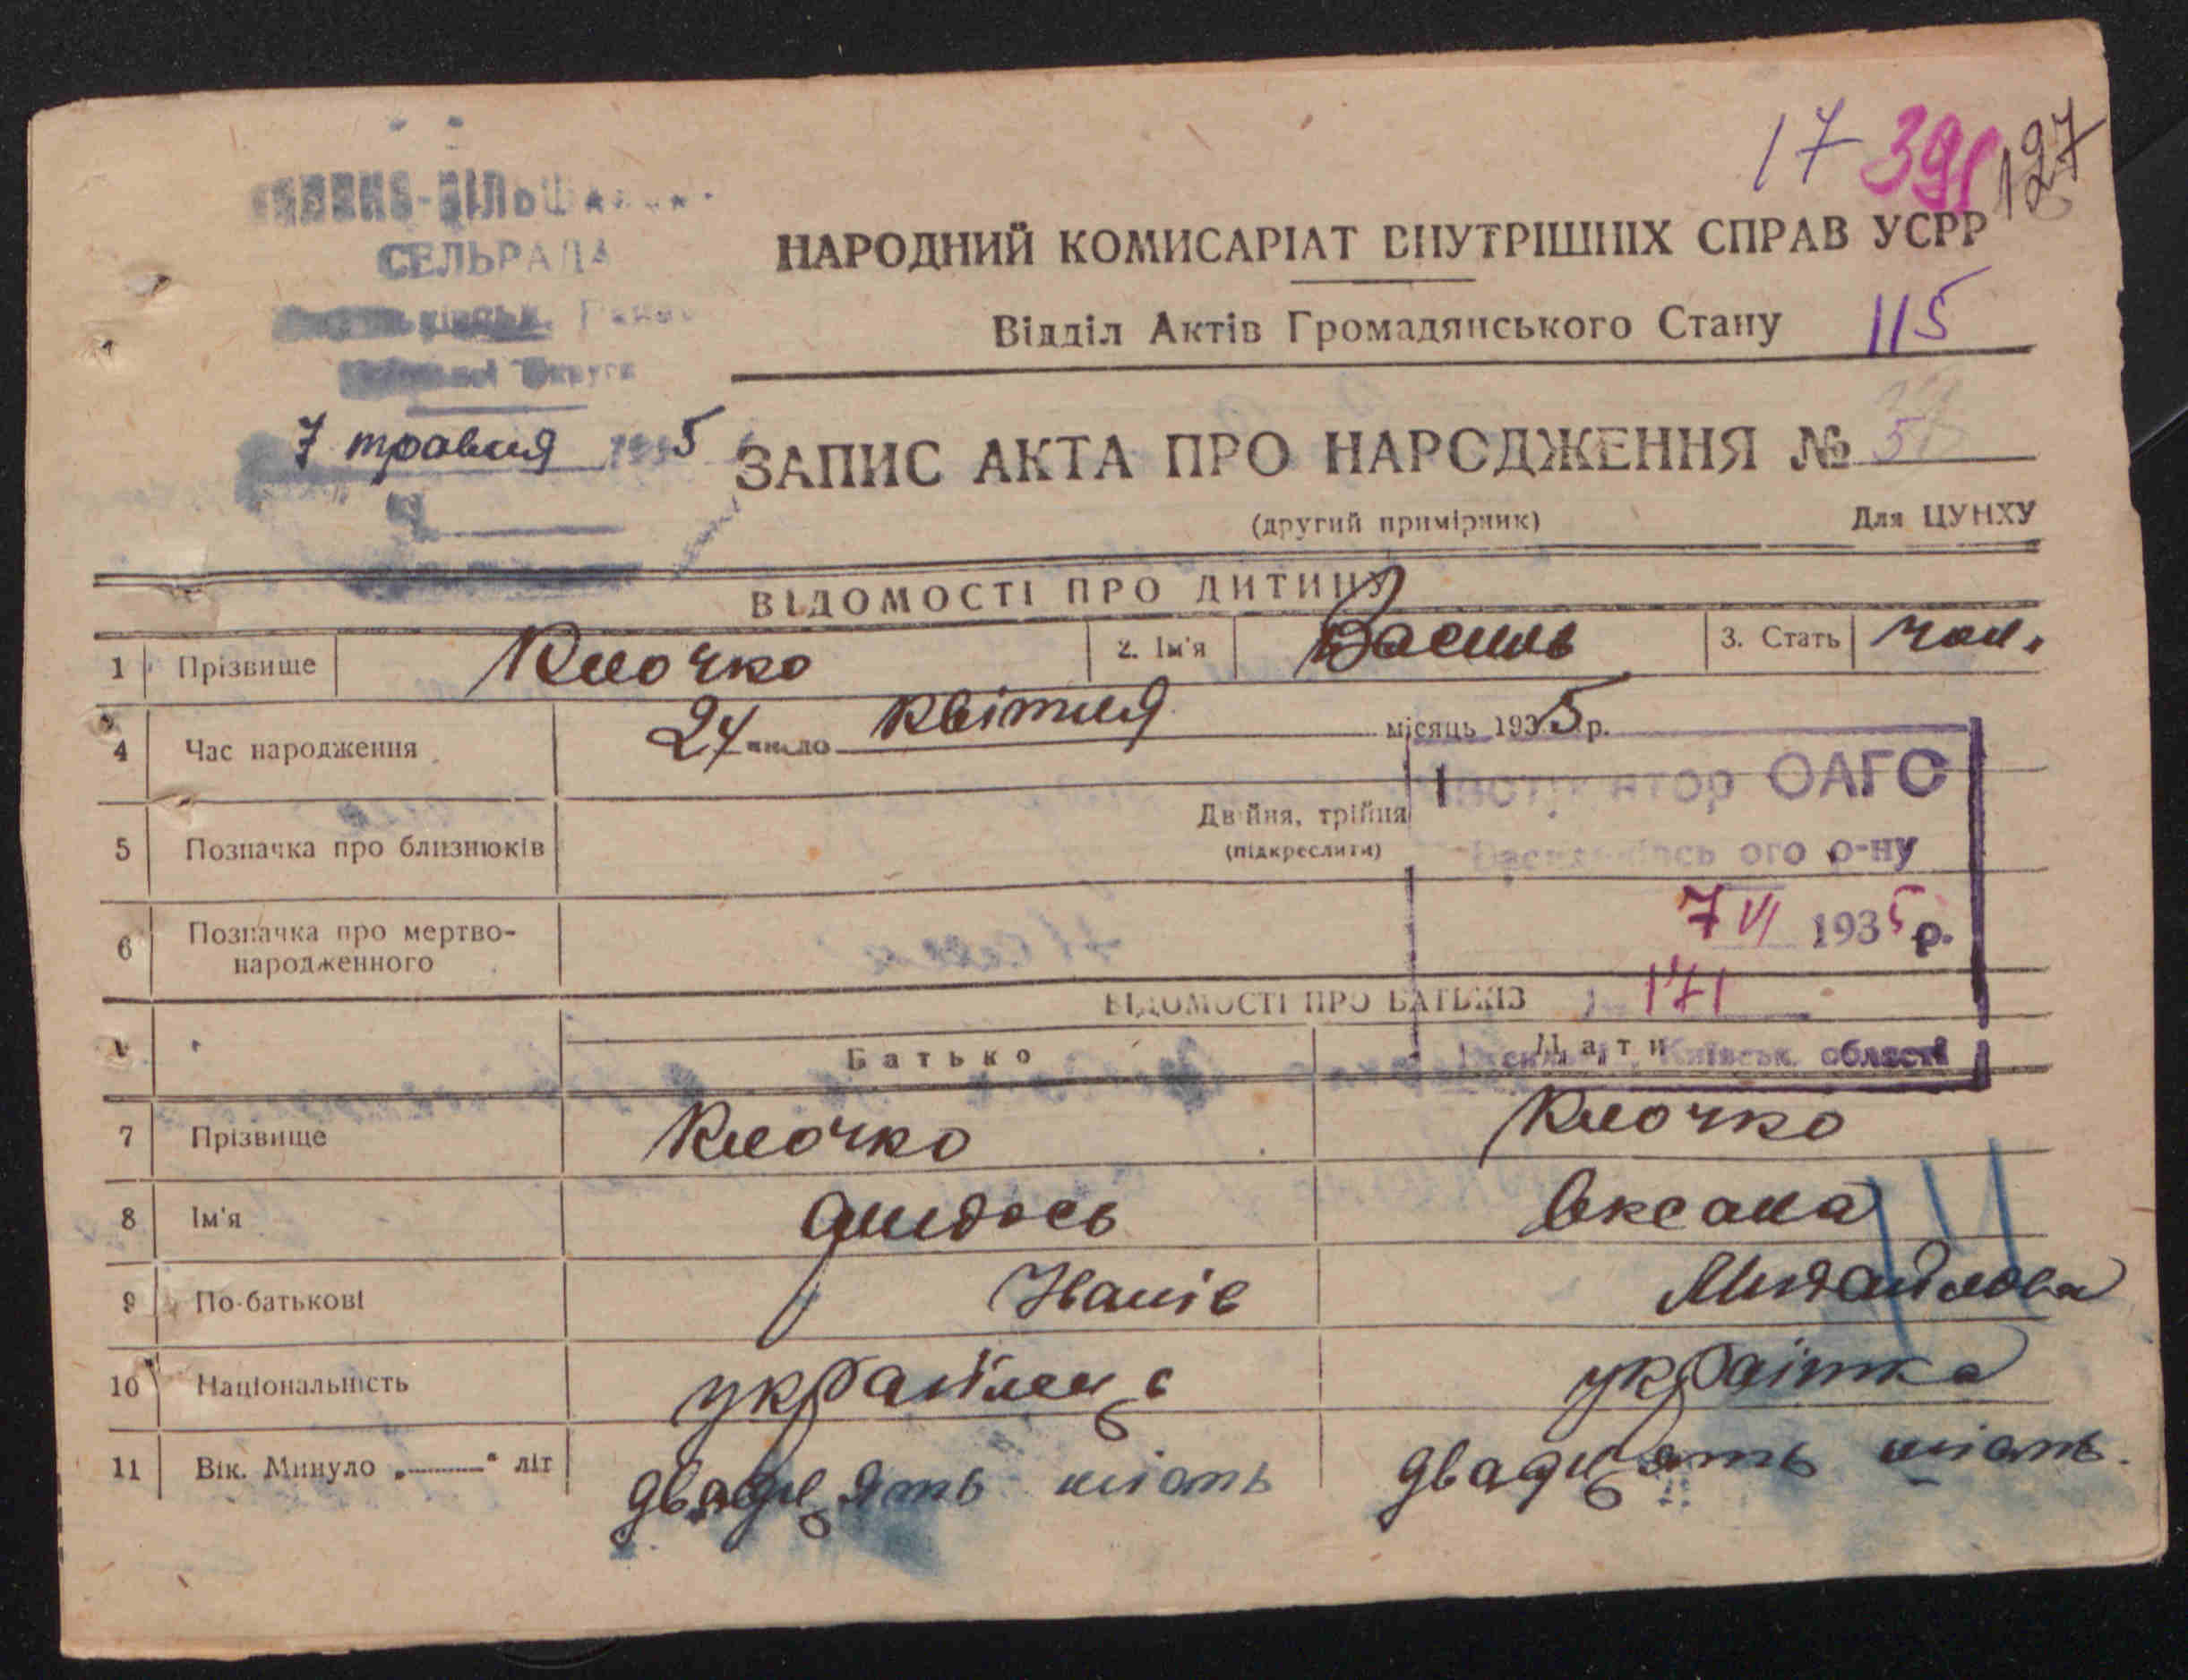 17 391 127
СЕЛЬРАДА
НАРОДНИЙ КОМИСАРІАТ ВНУТРІШНІХ СПРАВ УСРР
Відділ Актів Громадянського Стану 115
7 травня 1935
ЗАПИС АКТА ПРО НАРОДЖЕННЯ №
(другий примірник) Для ЦУНХУ
ВІДОМОСТІ ПРО ДИТИНУ
1 Прізвище Клочко 2. Ім'я Василь 3. Стать чол.
4 Час народження 24 число квітня місяць 1935 р.
ОАГС
5 Позначка про близнюків Двійня, трійня
(підкреслити)
ого р-ну
6 Позначка про мертво-
народженного
7 VI 1935 р.
ВІДОМОСТІ ПРО БАТЬКІВ 171
Батько Мати
Київськ. області
7 Прізвище Клочко Клочко
8 Ім'я Оксана
9 По-батькові Іванів Михайлова
10 Національність українець українка
11 Вік. Минуло „———“ літ двадцять шість двадцять шість.